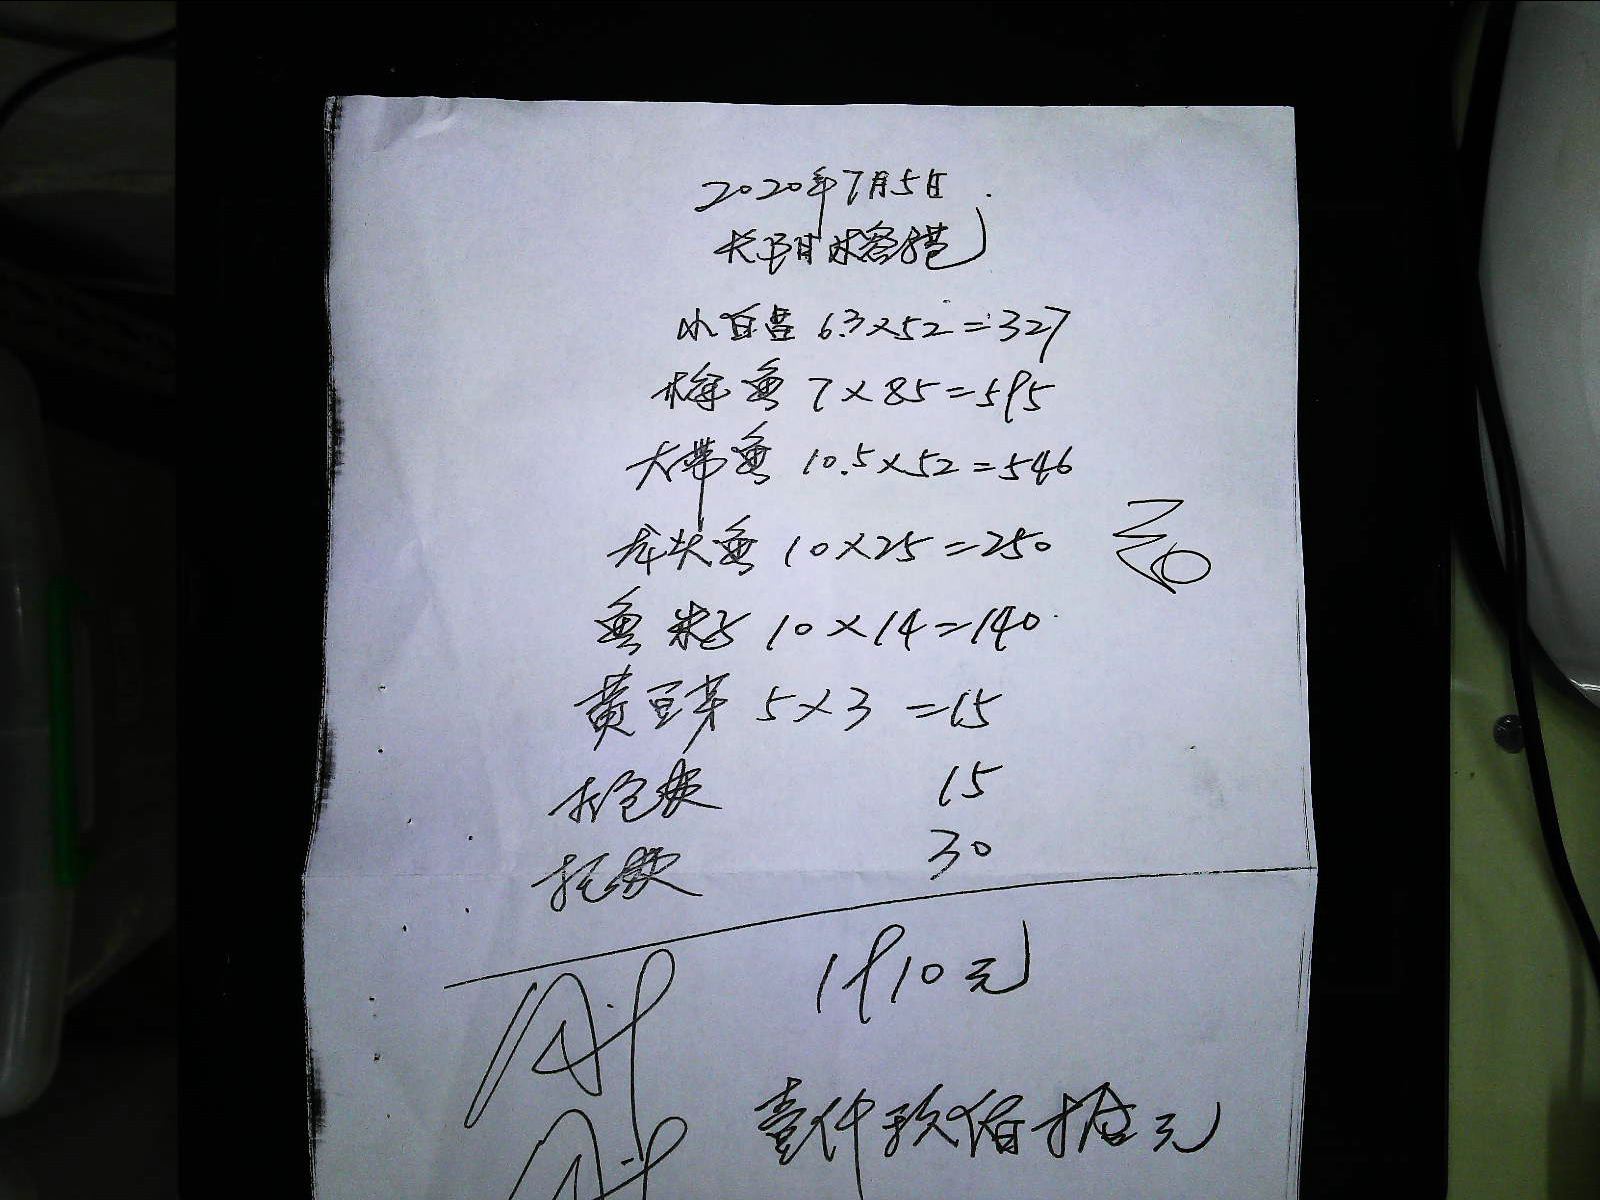 2020年7月5日
长阳
小白 63×52=327
梅鱼 7×85=595
大带鱼 10.5×52=546
龙头鱼 10×25=250
鱼籽 10×14=140
黄豆芽 5×3=15
打包费 15
托费 30
1910元
壹仟玖佰拾元